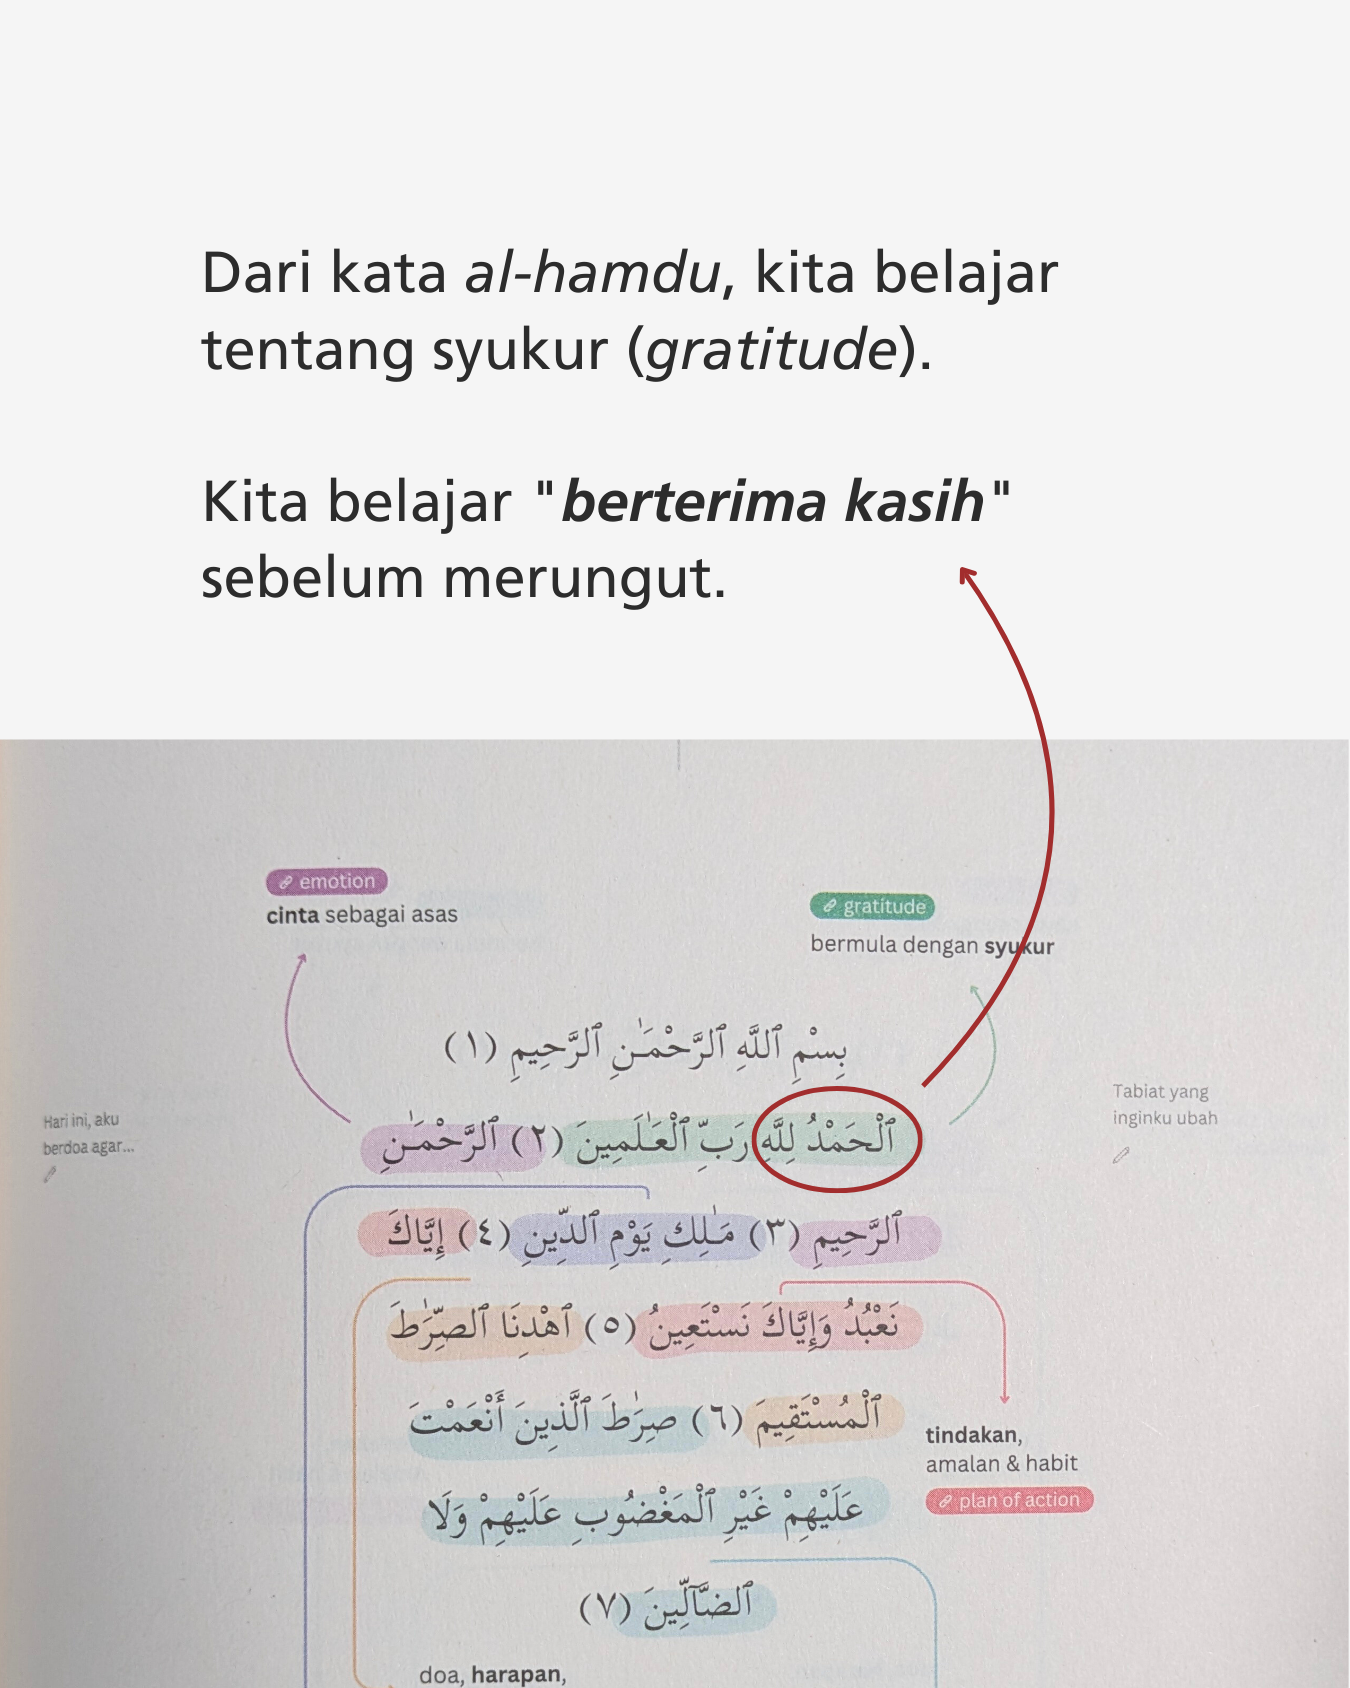 Dari kata al-hamdu, kita belajar
tentang syukur (gratitude).
Kita belajar "berterima kasih"
sebelum merungut.
emotion
cinta sebagai asas
gratitude
bermula dengan syukur
بِسْمِ ٱللَّهِ ٱلرَّحْمَـٰنِ ٱلرَّحِيمِ (١)
Hari ini, aku
berdoa agar...
Tabiat yang
inginku ubah
ٱلْحَمْدُ لِلَّهِ رَبِّ ٱلْعَـٰلَمِينَ (٢) ٱلرَّحْمَـٰنِ
ٱلرَّحِيمِ (٣) مَـٰلِكِ يَوْمِ ٱلدِّينِ (٤) إِيَّاكَ
نَعْبُدُ وَإِيَّاكَ نَسْتَعِينُ (٥) ٱهْدِنَا ٱلصِّرَٰطَ
ٱلْمُسْتَقِيمَ (٦) صِرَٰطَ ٱلَّذِينَ أَنْعَمْتَ
عَلَيْهِمْ غَيْرِ ٱلْمَغْضُوبِ عَلَيْهِمْ وَلَا
ٱلضَّآلِّينَ (٧)
tindakan,
amalan & habit
plan of action
doa, harapan,